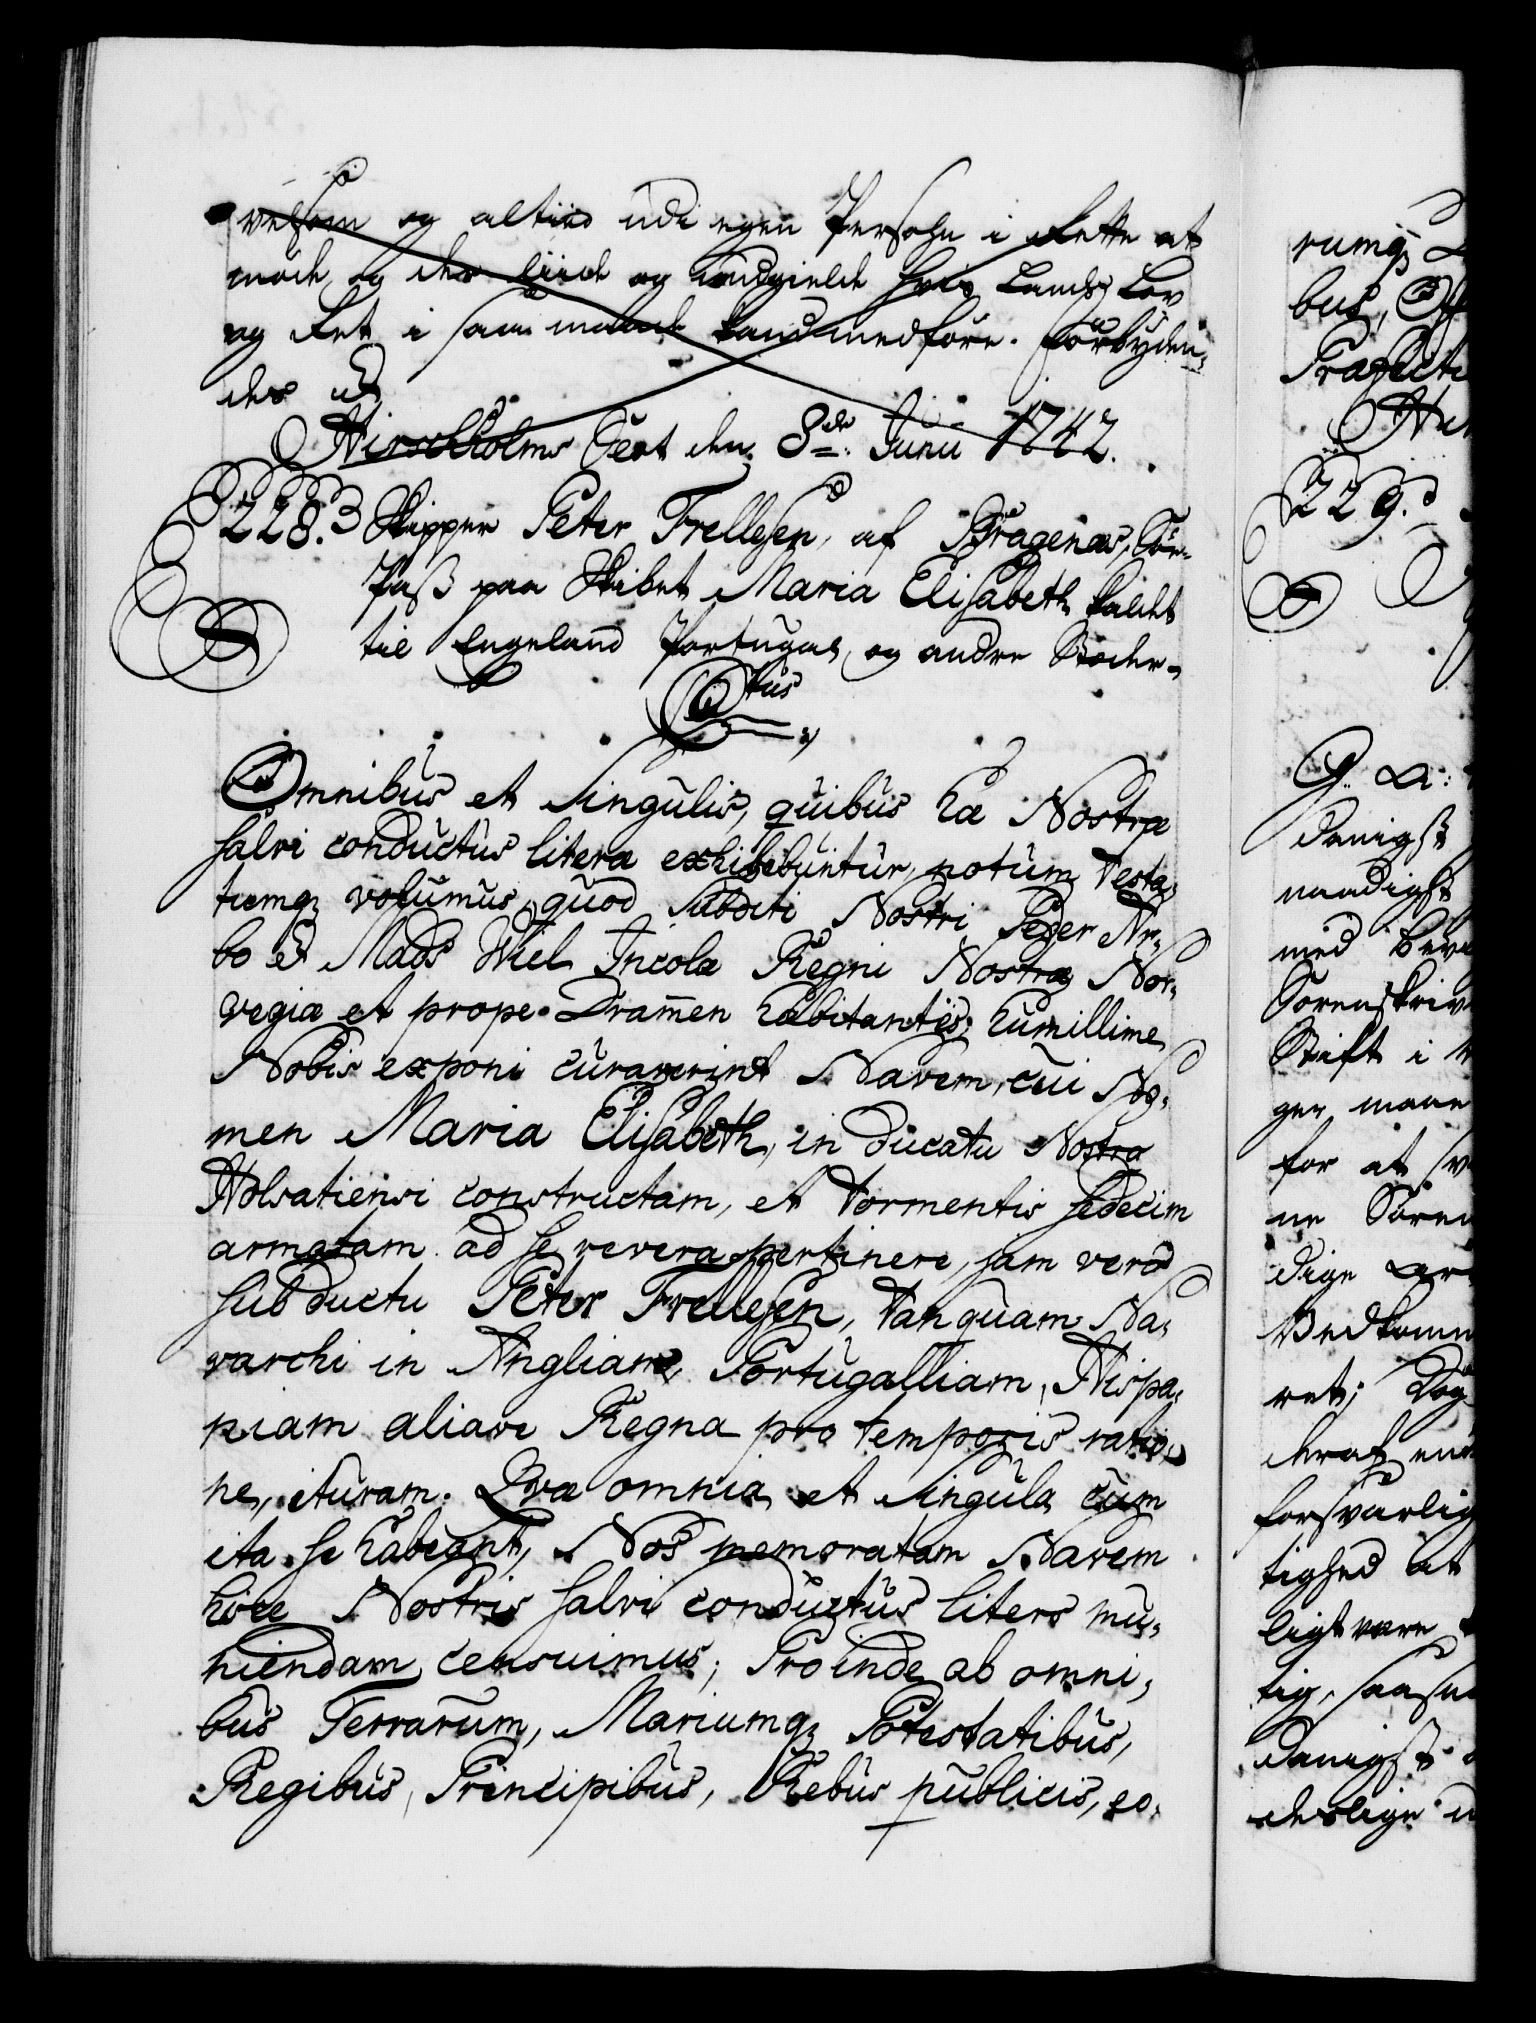 velsom og altiid udi egen Persohn i Rette at
møde, og der liide og undgielde hvis Lands Lov
og Ret i saa maade kand medføre. Forbyden-
des &
Hirschholms Slot den 8de Junii 1742.
228. Skipper Peter Frellesen, af Bragenæs, Søe-
Pass paa Skibet Maria Elisabeth kaldet
til Engeland Portugal, og andre Stæder.
Ctus
Omnibus et Singulis, quibus hæ Nostræ
salvi conductus literæ exhibebuntur, notum testa-
tumq; volumus, quod Subditi Nostri Peder Ar-
bo & Mads Wiel Incolæ Regni Nostræ Nor-
vegiæ et prope Dramen habitantes; humillime
Nobis exponi curaverint Navem, cui No-
men Maria Elisabeth, in Ducatu Nostra
Holsatiensi constructam, et tormentis sedecim
armatam ad se revera pertinere, jam verò
sub ductu Peter Frellesen, tanquam Na-
varchi in Angliam, Portugalliam, Hispa-
niam aliave Regna pro temporis ratio-
ne, ituram. Qvæ omnia et Singula cum
ita se habeant, Nos memoratam Navem
hisce Nostris salvi conductus liters mu-
niendam censuimus; Proinde ab omni-
bus Terrarum, Mariumq; Potestatibus,
Regibus, Principibus, Rebus publicis, eo-
rumq;
bus, Off
Præfecti
229.
G. A:
danigst
naadigst
med
Sorenskriv
Stift i
ger, maae
for at
ne Soren
dige
Vedkomm
ret; Dog
forsvarlig
tighed at
ligt være
tig, saasom
danigst
deslige